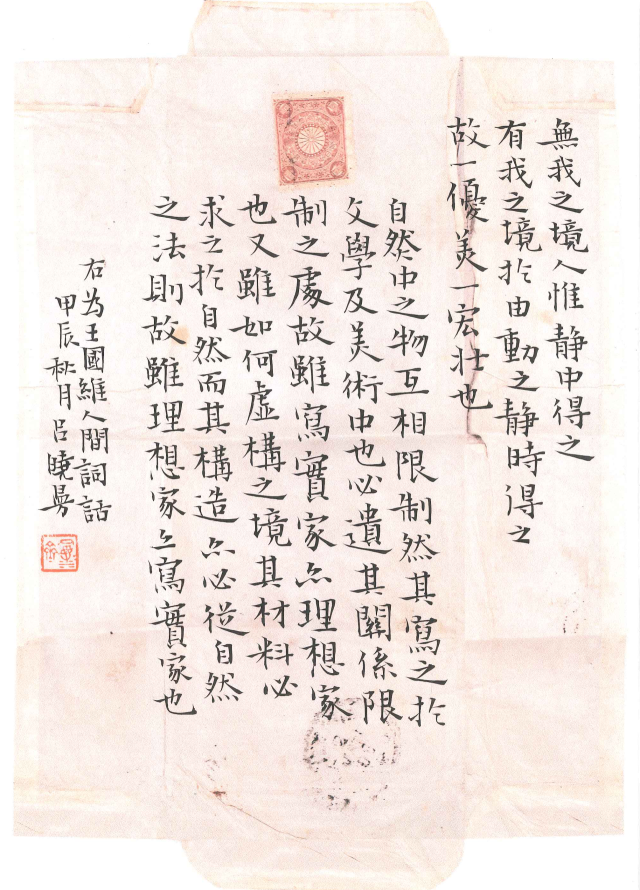 無我之境人惟靜中得之
有我之境於由動之靜時得之
故一優美一宏壯也
自然中之物互相限制然其寫之於
文學及美術中也必遺其關係限
制之處故雖寫實家亦理想家
也又雖如何虛構之境其材料必
求之於自然而其構造亦必從自然
之法則故雖理想家亦寫實家也
右為王國維人間詞話
甲辰秋月呂曉